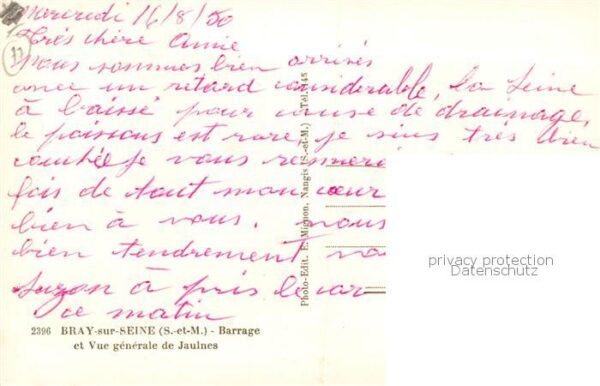 Mercredi 16/8/50
Très chère Annie
nous sommes bien arrivés
avec un retard considerable, la Seine
à baissé pour cause de drainage,
le poissons est rare, je suis très bien
je vous remerci
fois de tout mon cœur
bien à vous. nous
bien tendrement
Suzon à pris le car
ce matin
77
2396 BRAY-sur-SEINE (S.-et-M.) - Barrage
et Vue générale de Jaulnes
Photo-Edit. E. Mignon, Nangis (S.-et-M.) - Tél. 145
privacy protection
Datenschutz